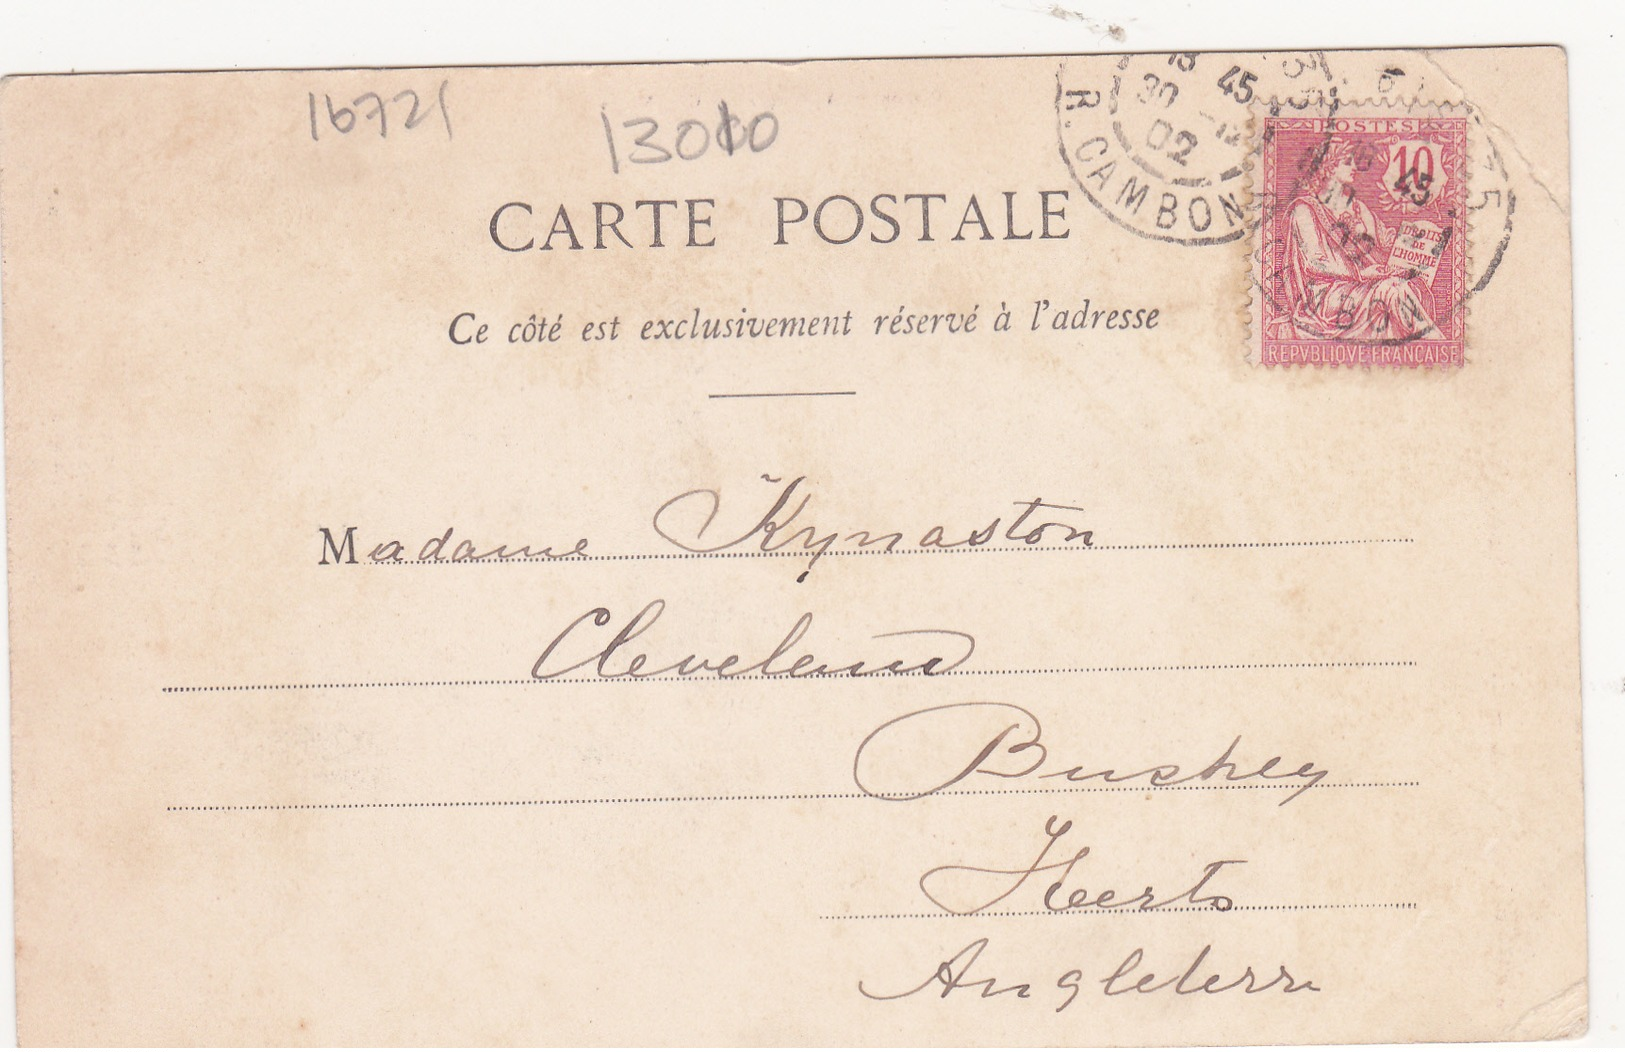 16721
13010
CARTE POSTALE
Ce côté est exclusivement réservé à l'adresse
R. CAMBON
13 45
30 -12
02
POSTES
10
45
DROITS
DE
L'HOMME
MBON
REPVBLIQVE FRANCAISE
Madame Kynaston
Cleveland
Bushey
Herts
Angleterre